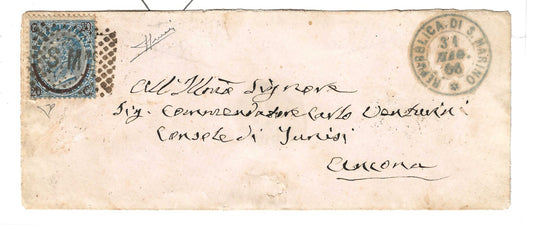 S M
REPUBBLICA. DI S. MARINO
31
66
All'
Signore
Sig. Commendatore Carlo Venturini
Console di Tunisi
Ancona